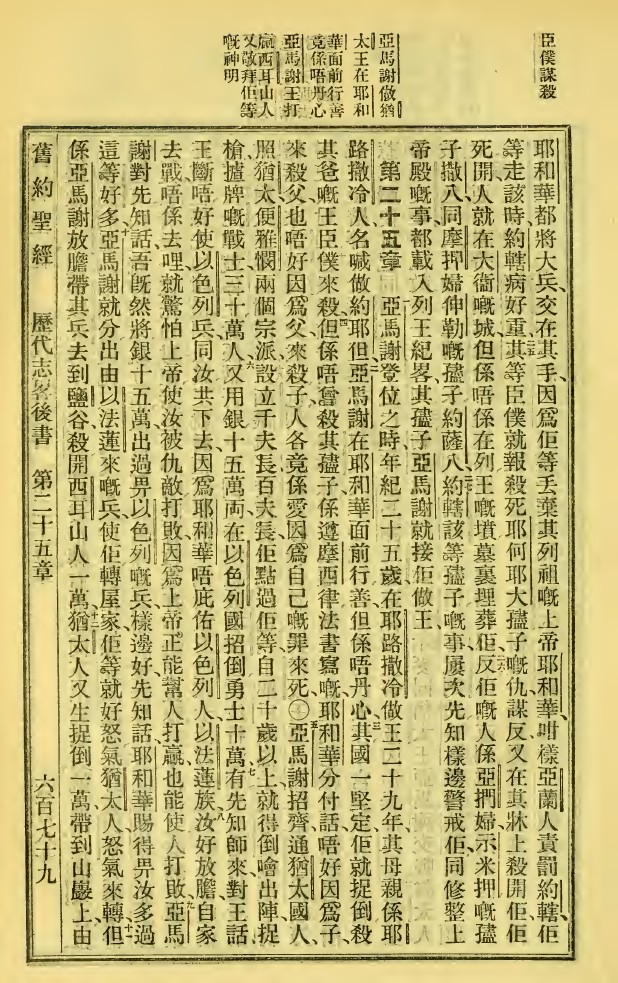 臣僕謀殺
亞馬謝做猶
太王在耶和
華面前行善
竟係唔丹心
亞馬謝王打
贏西耳山人
又敬拜佢等
嘅神明
耶和華都將大兵交在其手因爲佢等丟棄其列祖嘅上帝耶和華咁樣亞蘭人責罰約轄佢
等走該時約轄病好重其等臣僕就報殺死耶何耶大孻子嘅仇謀反又在其牀上殺開佢佢
死開人就在大衞嘅城但係唔係在列王嘅墳墓裏埋葬佢反佢嘅人係亞捫婦示米押嘅孻
子撒八同摩押婦伸勒嘅孻子約薩八約轄該等孻子嘅事屢次先知樣邊警戒佢同修整上
帝殿嘅事都載入列王紀畧其孻子亞馬謝就接佢做王
第二十五章 亞馬謝登位之時年紀二十五歲在耶路撒冷做王二十九年其母親係耶
路撒冷人名喊做約耶但亞馬謝在耶和華面前行善但係唔丹心其國一堅定佢就捉倒殺
其爸嘅王臣僕來殺但係唔曾殺其孻子係遵摩西律法書寫嘅耶和華分付話唔好因爲子
來殺父也唔好因爲父來殺子人各竟係愛因爲自己嘅罪來死〇亞馬謝招齊通猶太國人
照猶太便雅憫兩個宗派設立千夫長百夫長佢點過佢等自二十歲以上就得倒噲出陣捉
槍擋牌嘅戰士三十萬人又用銀十五萬両在以色列國招倒勇士十萬有先知師來對王話
王斷唔好使以色列兵同汝共下去因爲耶和華唔庇佑以色列人以法蓮族汝好放膽自家
去戰唔係去哩就驚怕上帝使汝被仇敵打敗因爲上帝正能幫人打贏也能使人打敗亞馬
謝對先知話吾旣然將銀十五萬出過畀以色列嘅兵樣邊好先知話耶和華賜得畀汝多過
這等好多亞馬謝就分出由以法蓮來嘅兵使佢轉屋家佢等就好怒氣猶太人怒氣來轉但
係亞馬謝放膽帶其兵去到鹽谷殺開西耳山人一萬猶太人又生捉倒一萬帶到山巖上由
舊約聖經 歷代志畧後書 第二十五章 六百七十九